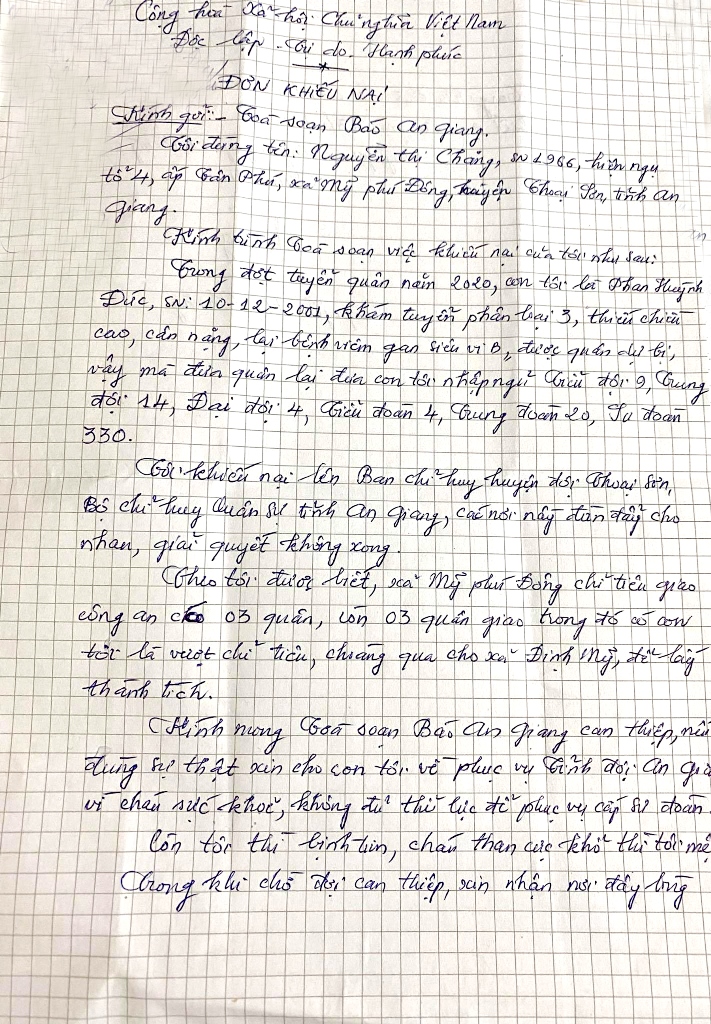 Cộng hoà Xã hội Chủ nghĩa Việt Nam
Độc lập - Tự do - Hạnh phúc
ĐƠN KHIẾU NẠI
Kính gởi: - Toà soạn Báo An Giang.
Tôi đứng tên: Nguyễn Thị Chẳng, SN 1966, hiện ngụ
tổ 4, ấp Tân Phú, xã Mỹ Phú Đông, huyện Thoại Sơn, tỉnh An
Giang.
Kính trình Toà soạn việc khiếu nại của tôi như sau:
Trong đợt tuyển quân năm 2020, con tôi là Phan Huỳnh
Đức, SN: 10-12-2001, khám tuyển phân loại 3, thiếu chiều
cao, cân nặng, lại bệnh viêm gan siêu vi B, được quân dự bị,
vậy mà đưa quân lại đưa con tôi nhập ngũ Tiểu đội 9, Trung
đội 14, Đại đội 4, Tiểu đoàn 4, Trung đoàn 20, Sư đoàn
330.
Tôi khiếu nại lên Ban chỉ huy huyện đội Thoại Sơn,
Bộ chỉ huy Quân sự tỉnh An Giang, các nơi nầy đùn đẩy cho
nhau, giải quyết không xong.
Theo tôi được biết, xã Mỹ Phú Đông chỉ tiêu giao
công an có 03 quân, còn 03 quân giao trong đó có con
tôi là vượt chỉ tiêu, choàng qua cho xã Định Mỹ, để lấy
thành tích.
Kính mong Toà soạn Báo An Giang can thiệp, nếu
đúng sự thật xin cho con tôi về phục vụ Tỉnh đội An
vì cháu sức khoẻ, không đủ thể lực để phục vụ cấp Sư đoàn.
Còn tôi thì bịnh tim, cháu than cực khổ thì tôi
Trong khi chờ đợi can thiệp, xin nhận nơi đây lòng